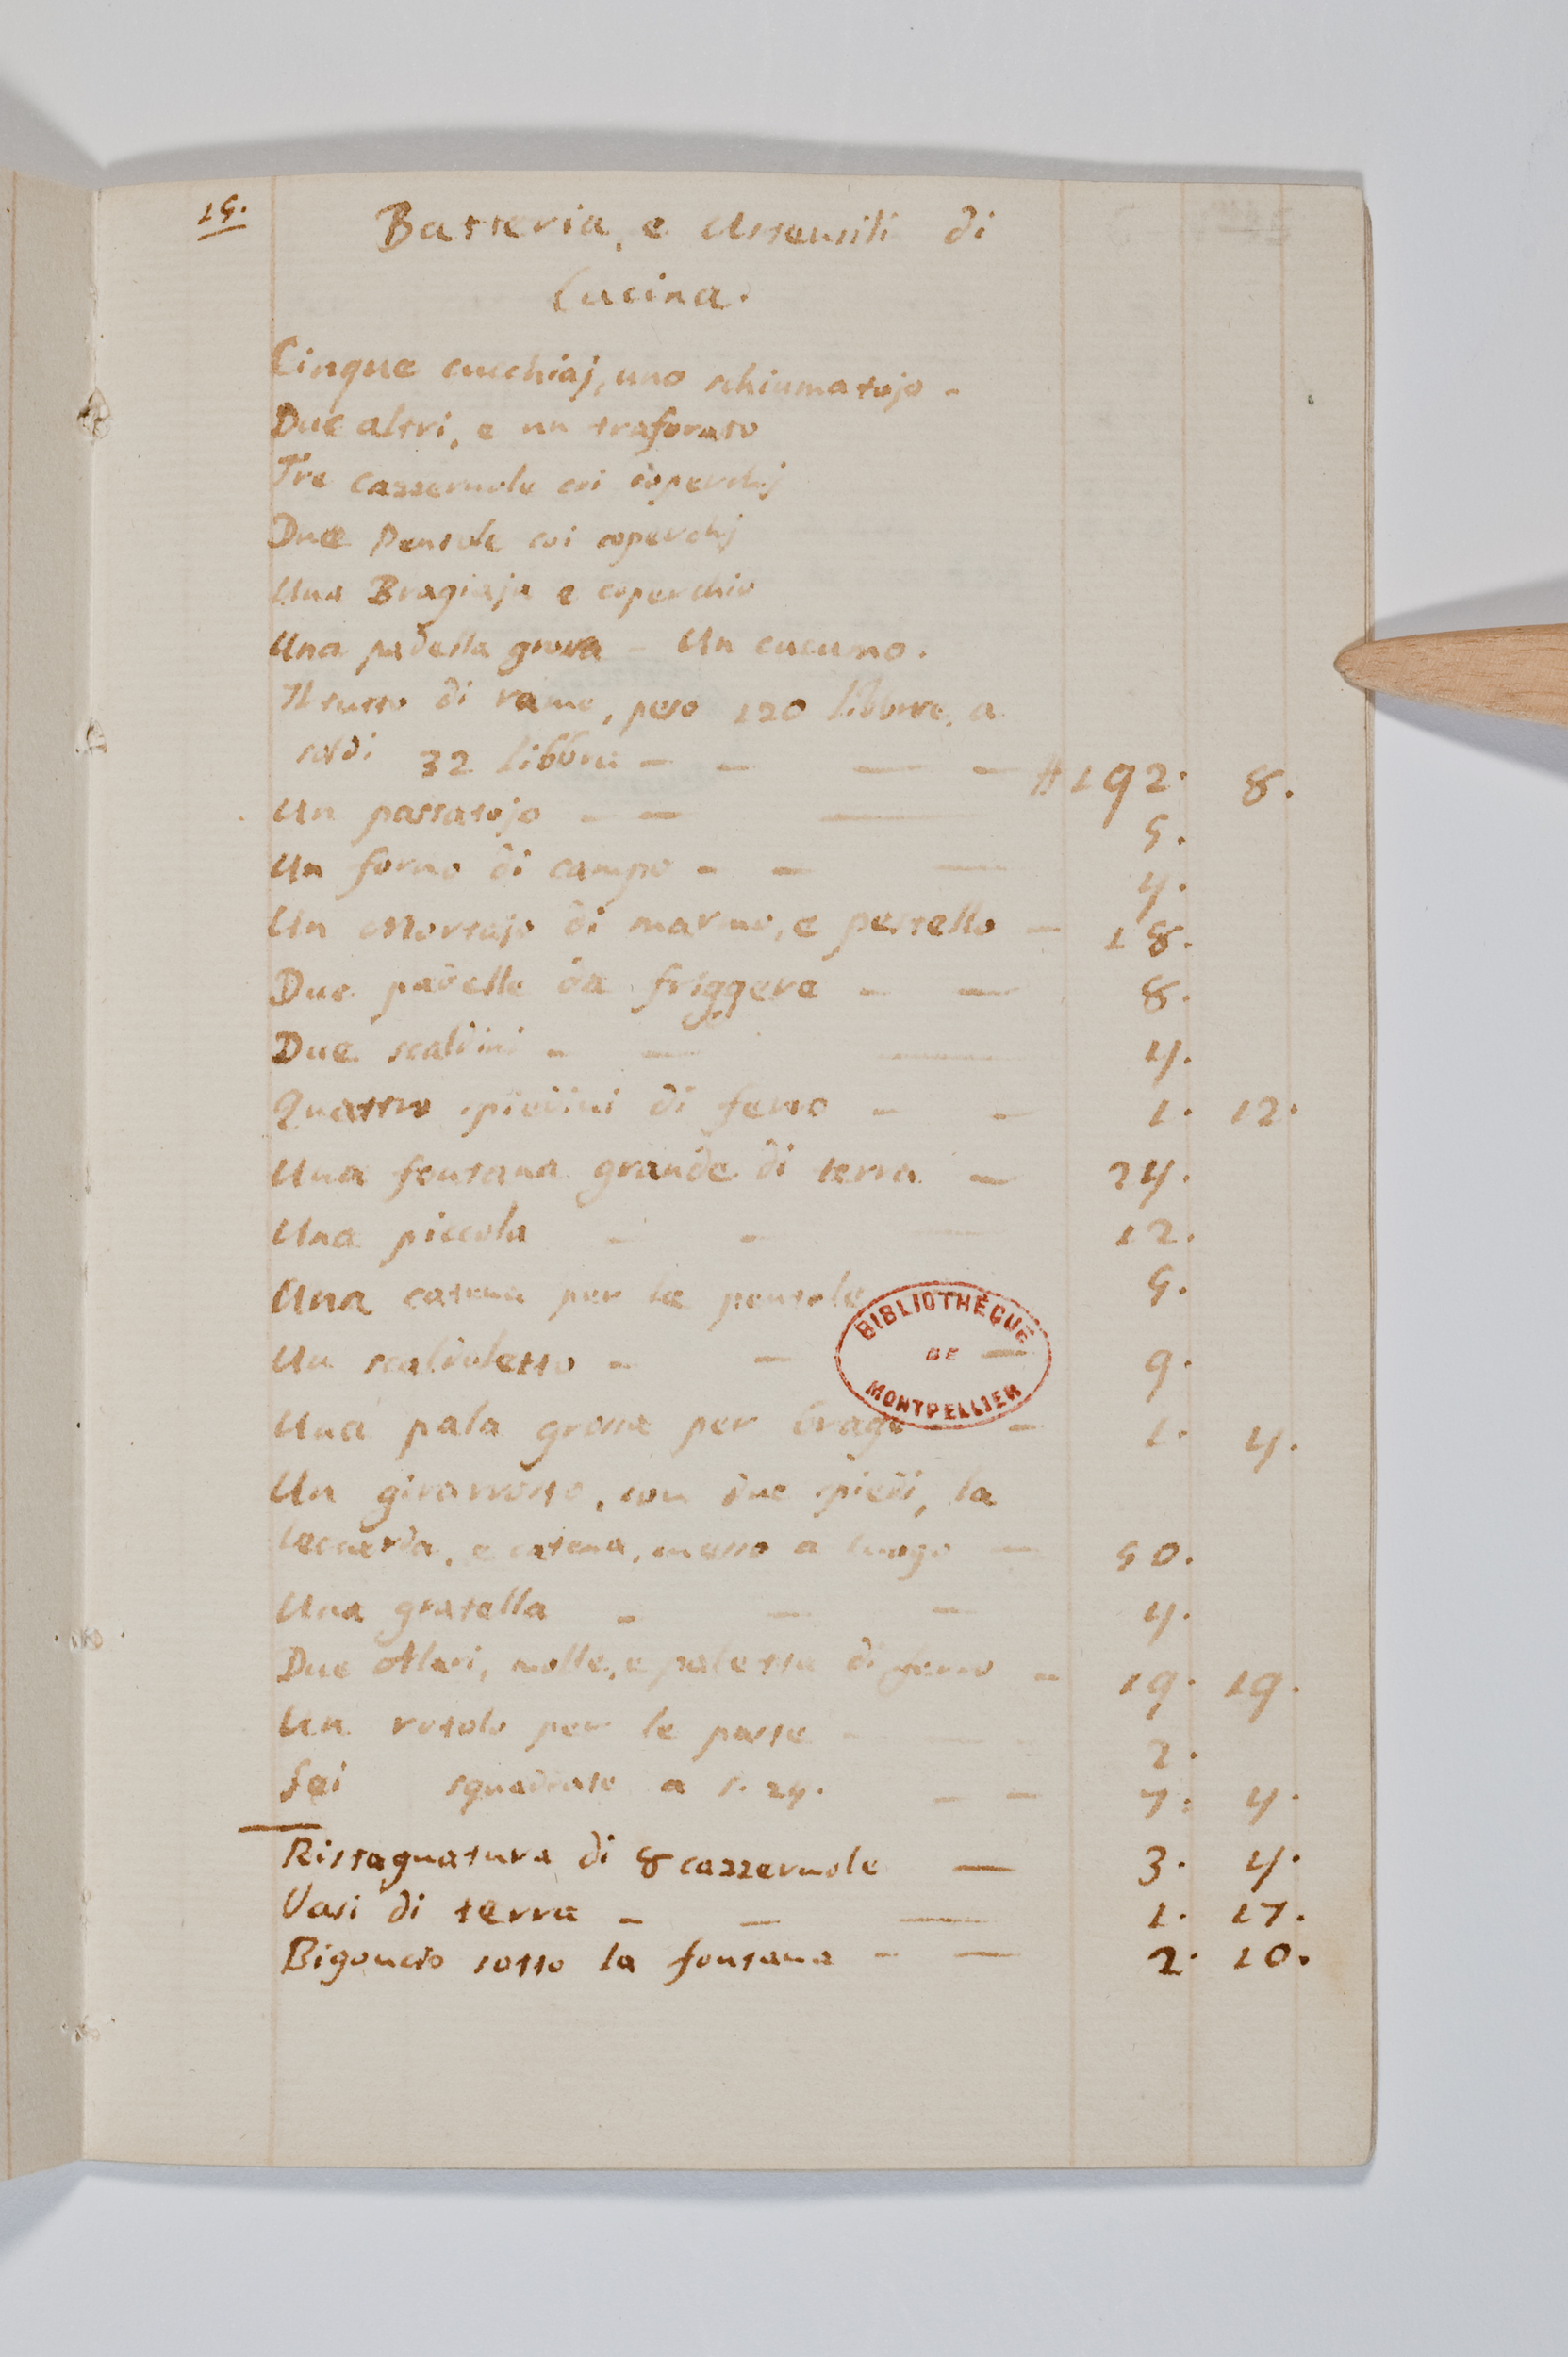 15.
Batteria, e Utensili di
Cucina.
Cinque cucchiaj, uno schiumatojo -
Due altri, e un traforato
Tre cazzeruole coi coperchj
Due Pentole coi coperchj
Una Bragiaja e coperchio
Una padella grossa - Un cucumo.
Il tutto di rame, peso 120 libbre, a
soldi 32 libbra - - - - 192. 8.
Un passatojo - - - 5.
Un forno di campo - - - 4.
Un Mortajo di marmo, e pestello - 18.
Due padelle da friggere - - 8.
Due scaldini - - - 4.
Quattro spiedini di ferro - - 1. 12.
Una fontana grande di terra - 24.
Una piccola - - - 12.
Una catena per le pentole 5.
Un scaldaletto - - - 9.
Una pala grossa per brage - 1. 4.
Un girarrosto, con due spiedi, la
leccarda, e catena, messo a luogo - 50.
Una gratella - - - 4.
Due Alari, molle, e paletta di ferro - 19. 19.
Un rotolo per le paste - 2.
Sei squadrate a s. 24. - - 7. 4.
Ristagnatura di 8 cazzeruole - 3. 4.
Vasi di terra - - - 1. 17.
Bigoncio sotto la fontana - - 2. 10.
BIBLIOTHÈQUE
DE
MONTPELLIER